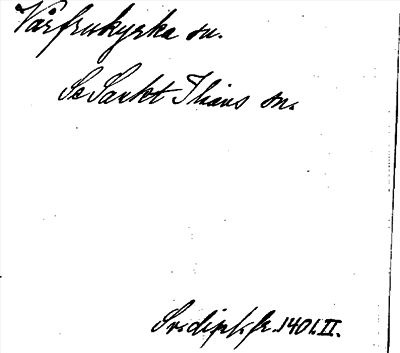 Vårfrukyrka sn.
Se Sankt Ilians sn.
Sv. dipl. fr. 1401. II.